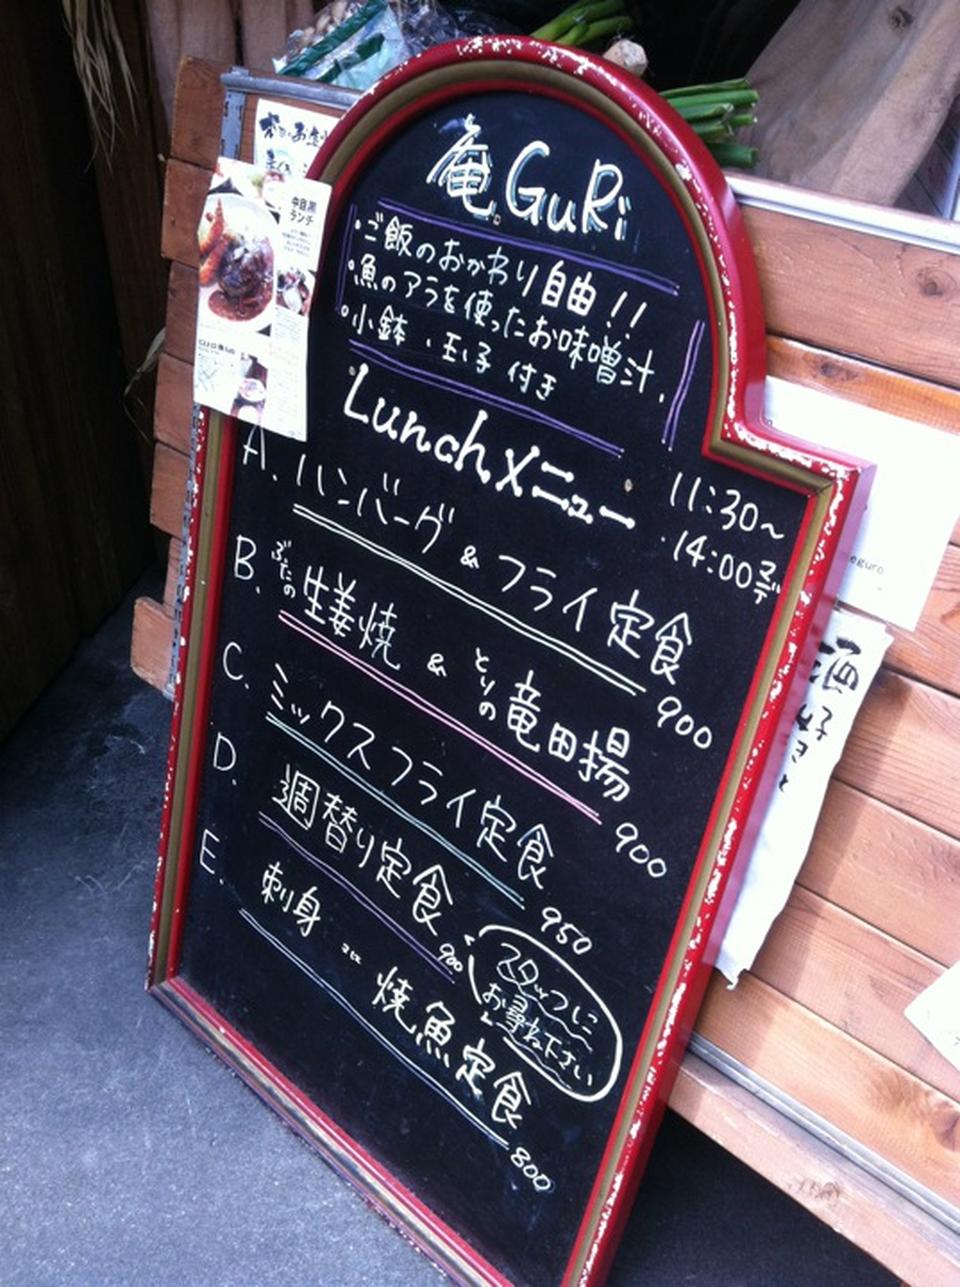 庵GuRi
・ご飯のおかわり自由!!
・魚のアラを使ったお味噌汁.
・小鉢・玉子付き
Lunchメニュー
11:30~
14:00まで
A.ハンバーグ&フライ定食
900
B.ぶたの生姜焼&とりの竜田揚
900
C.ミックスフライ定食
950
D.週替り定食
900
スタッフに
お尋ね下さい
E.刺身 or 焼魚定食
800
中目黒
ランチ
酒
好き
eguro